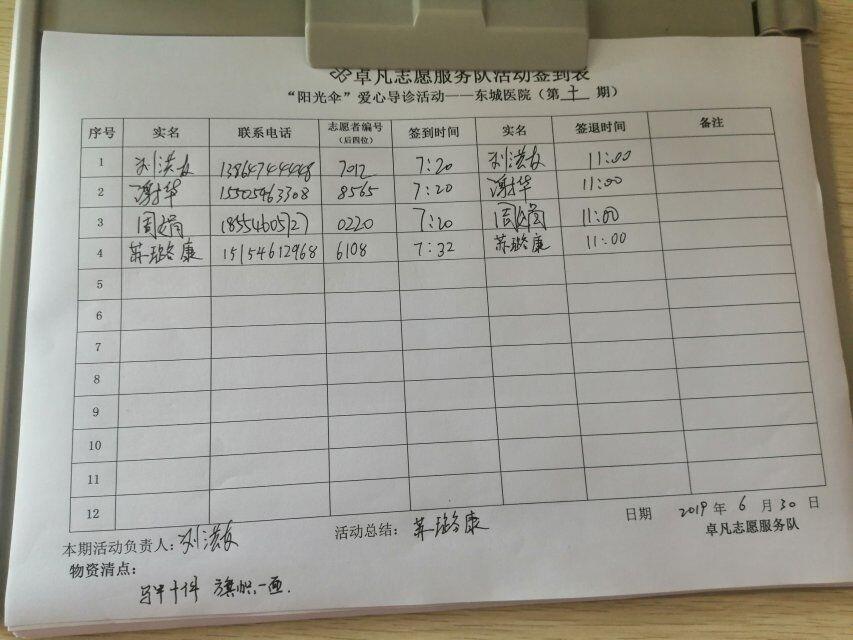 卓凡志愿服务队活动签到表
“阳光伞”爱心导诊活动——东城医院（第 十一 期）
序号 实名 联系电话 志愿者编号（后四位） 签到时间 实名 签退时间 备注
1 刘洪友 13864744448 7012 7:20 刘洪友 11:00
2 谢华 15505463308 8565 7:20 谢华 11:00
3 周娟 18554605727 0220 7:20 周娟 11:00
4 苏璐康 15154612968 6108 7:32 苏璐康 11:00
5
6
7
8
9
10
11
12
本期活动负责人：刘洪友 活动总结：苏璐康 日期 2019 年 6 月 30 日
卓凡志愿服务队
物资清点：
马甲十件 旗帜一面.